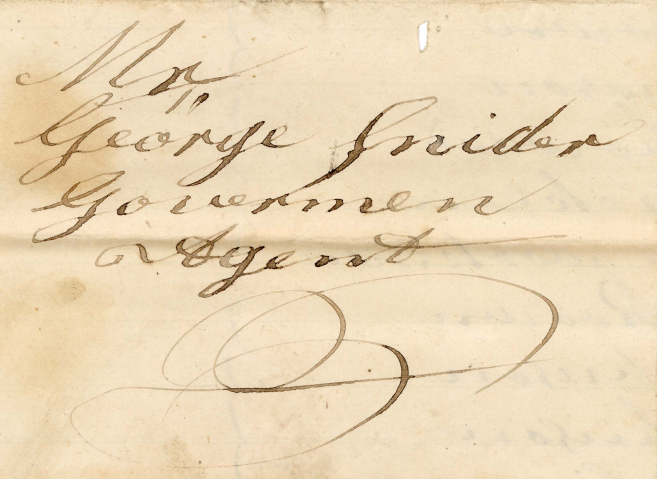 Mr,
George Snider
Govermen
Agent